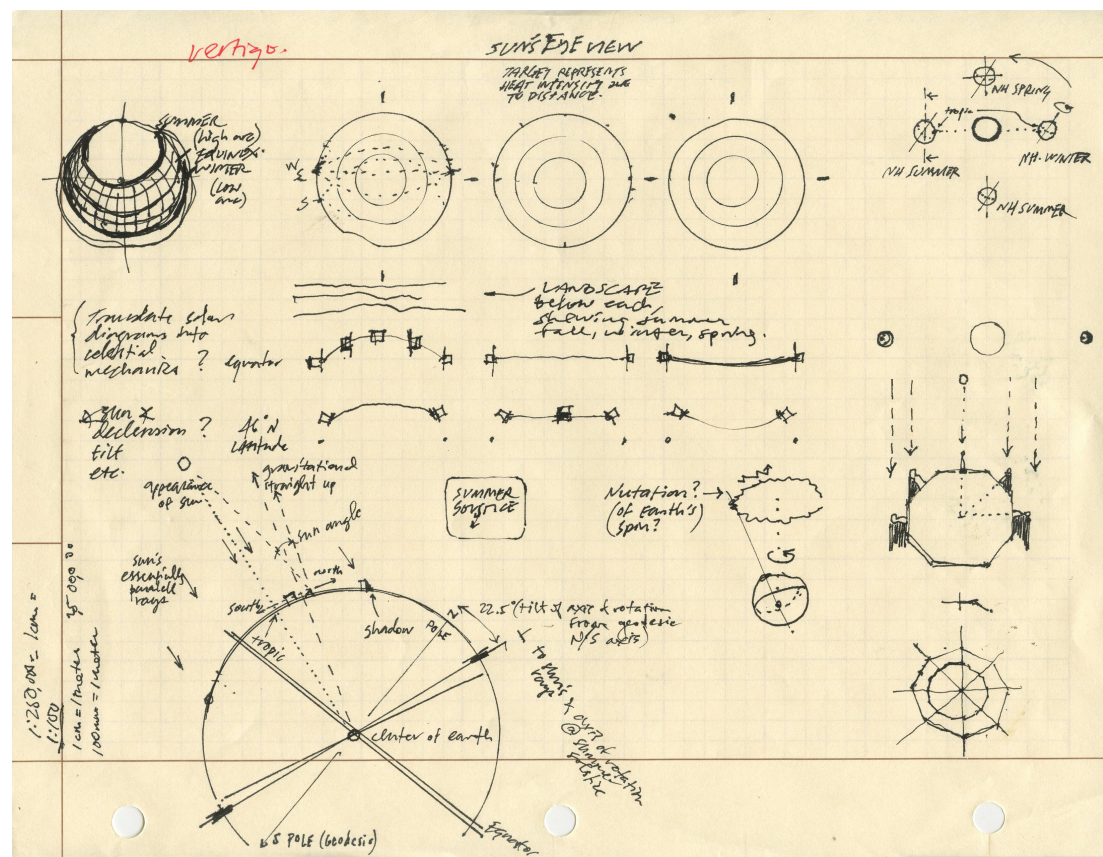 vertigo.
SUN'S EYE VIEW
TARGET REPRESENTS
HEAT INTENSITY DUE
TO DISTANCE.
SUMMER
(high arc)
EQUINOX
WINTER
(LOW
arc)
W
E
S
NH SPRING
tropic
NH SUMMER
NH-WINTER
NH SUMMER
LANDSCAPE
below each,
showing summer
fall, winter, spring.
Translate solar
diagrams into
celestial
mechanics ?
equator
sun
declension ?
tilt
etc.
46° N
Latitude
gravitational
straight up
appearance
of sun
sun angle
SUMMER
SOLSTICE
Nutation?
(of Earth's)
spin?
sun's
essentially
parallel
rays
north
south
tropic
shadow
N POLE
22.5° (tilt of axis of rotation
from geodesic
N/S axis)
to sun's
rays
axis of rotation
@ summer
solstice
center of earth
S POLE (Geodesic)
Equator
1cm = 1meter
100mm = 1meter
1:100